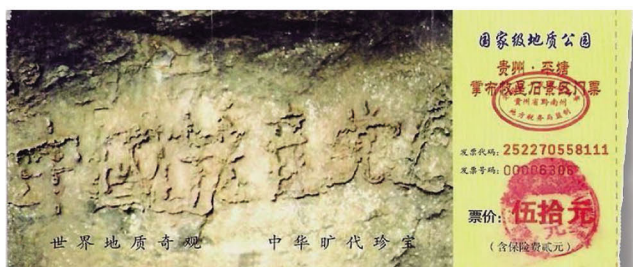 中国共产党
世界地质奇观 中华旷代珍宝
国家级地质公园
贵州·平塘
掌布藏字石景区门票
贵州省黔南州
地方税务局监制
发票代码:252270558111
发票号码:00006306
票价:伍拾元
(含保险费贰元)